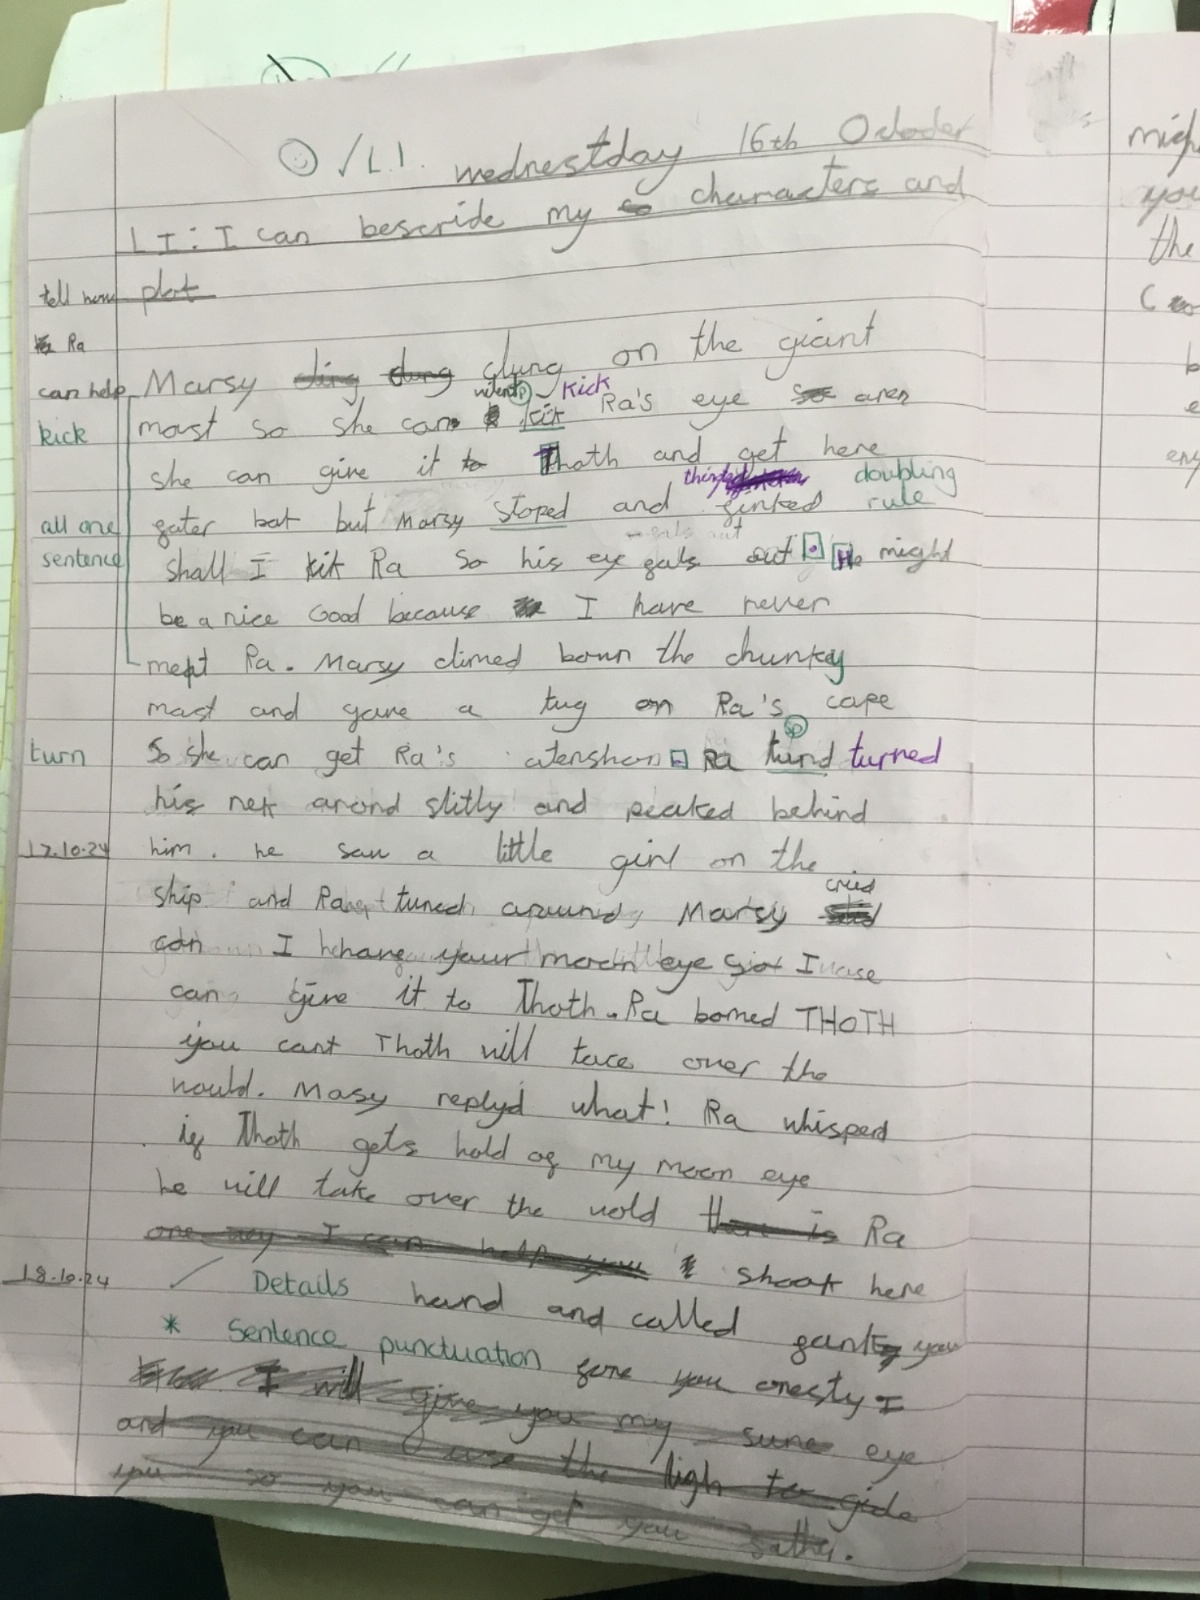 ☺ /L.I. wednestday 16th Octoder
LI: I can bescride my characters and
tell how plot
Ra
can help Marsy ding dung clung on the giant
kick
most so she can kik kick Ra's eye so aren
she can give it to Thoth and get here
thinked doubling
all one gater bat but Marsy stoped and finked rule
sentence shall I kik Ra so his eye gals out. He might
be a nice God because I have never
mept Ra. Marsy climed boun the chunkey
mast and gave a tug on Ra's cape
sp
turn So she can get Ra's atenshon. Ra tund turned
his nek arond slitly and peaked behind
17.10.24 him. he saw a little girl on the
cried
ship and Ra tuned around, Marsy said
can I have your moon eye so I
can give it to Thoth. Ra bomed THOTH
you cant Thoth will tace over the
would. Masy replyd what! Ra whisperd
if Thoth gets hold of my moon eye
he will take over the wold there is Ra
one way I can help you shook here
18.10.24 / Details hand and called you
* Sentence punctuation fore you onesty I
I will give you my sune eye
and you can use the ligh to gide
you so you can get you